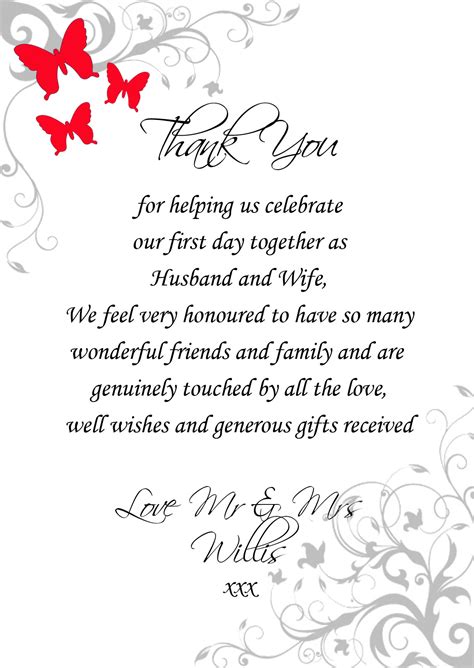 Thank You
for helping us celebrate
our first day together as
Husband and Wife,
We feel very honoured to have so many
wonderful friends and family and are
genuinely touched by all the love,
well wishes and generous gifts received
Love Mr & Mrs
Willis
xxx